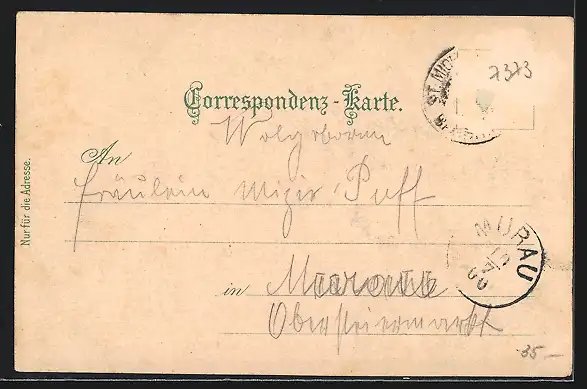 7373
ST. MICH
Correspondenz-Karte.
Wolgeboren
An
Fräulein Mizi Puff
MURAU
in
Obersteiermark
Nur für die Adresse.
35 –